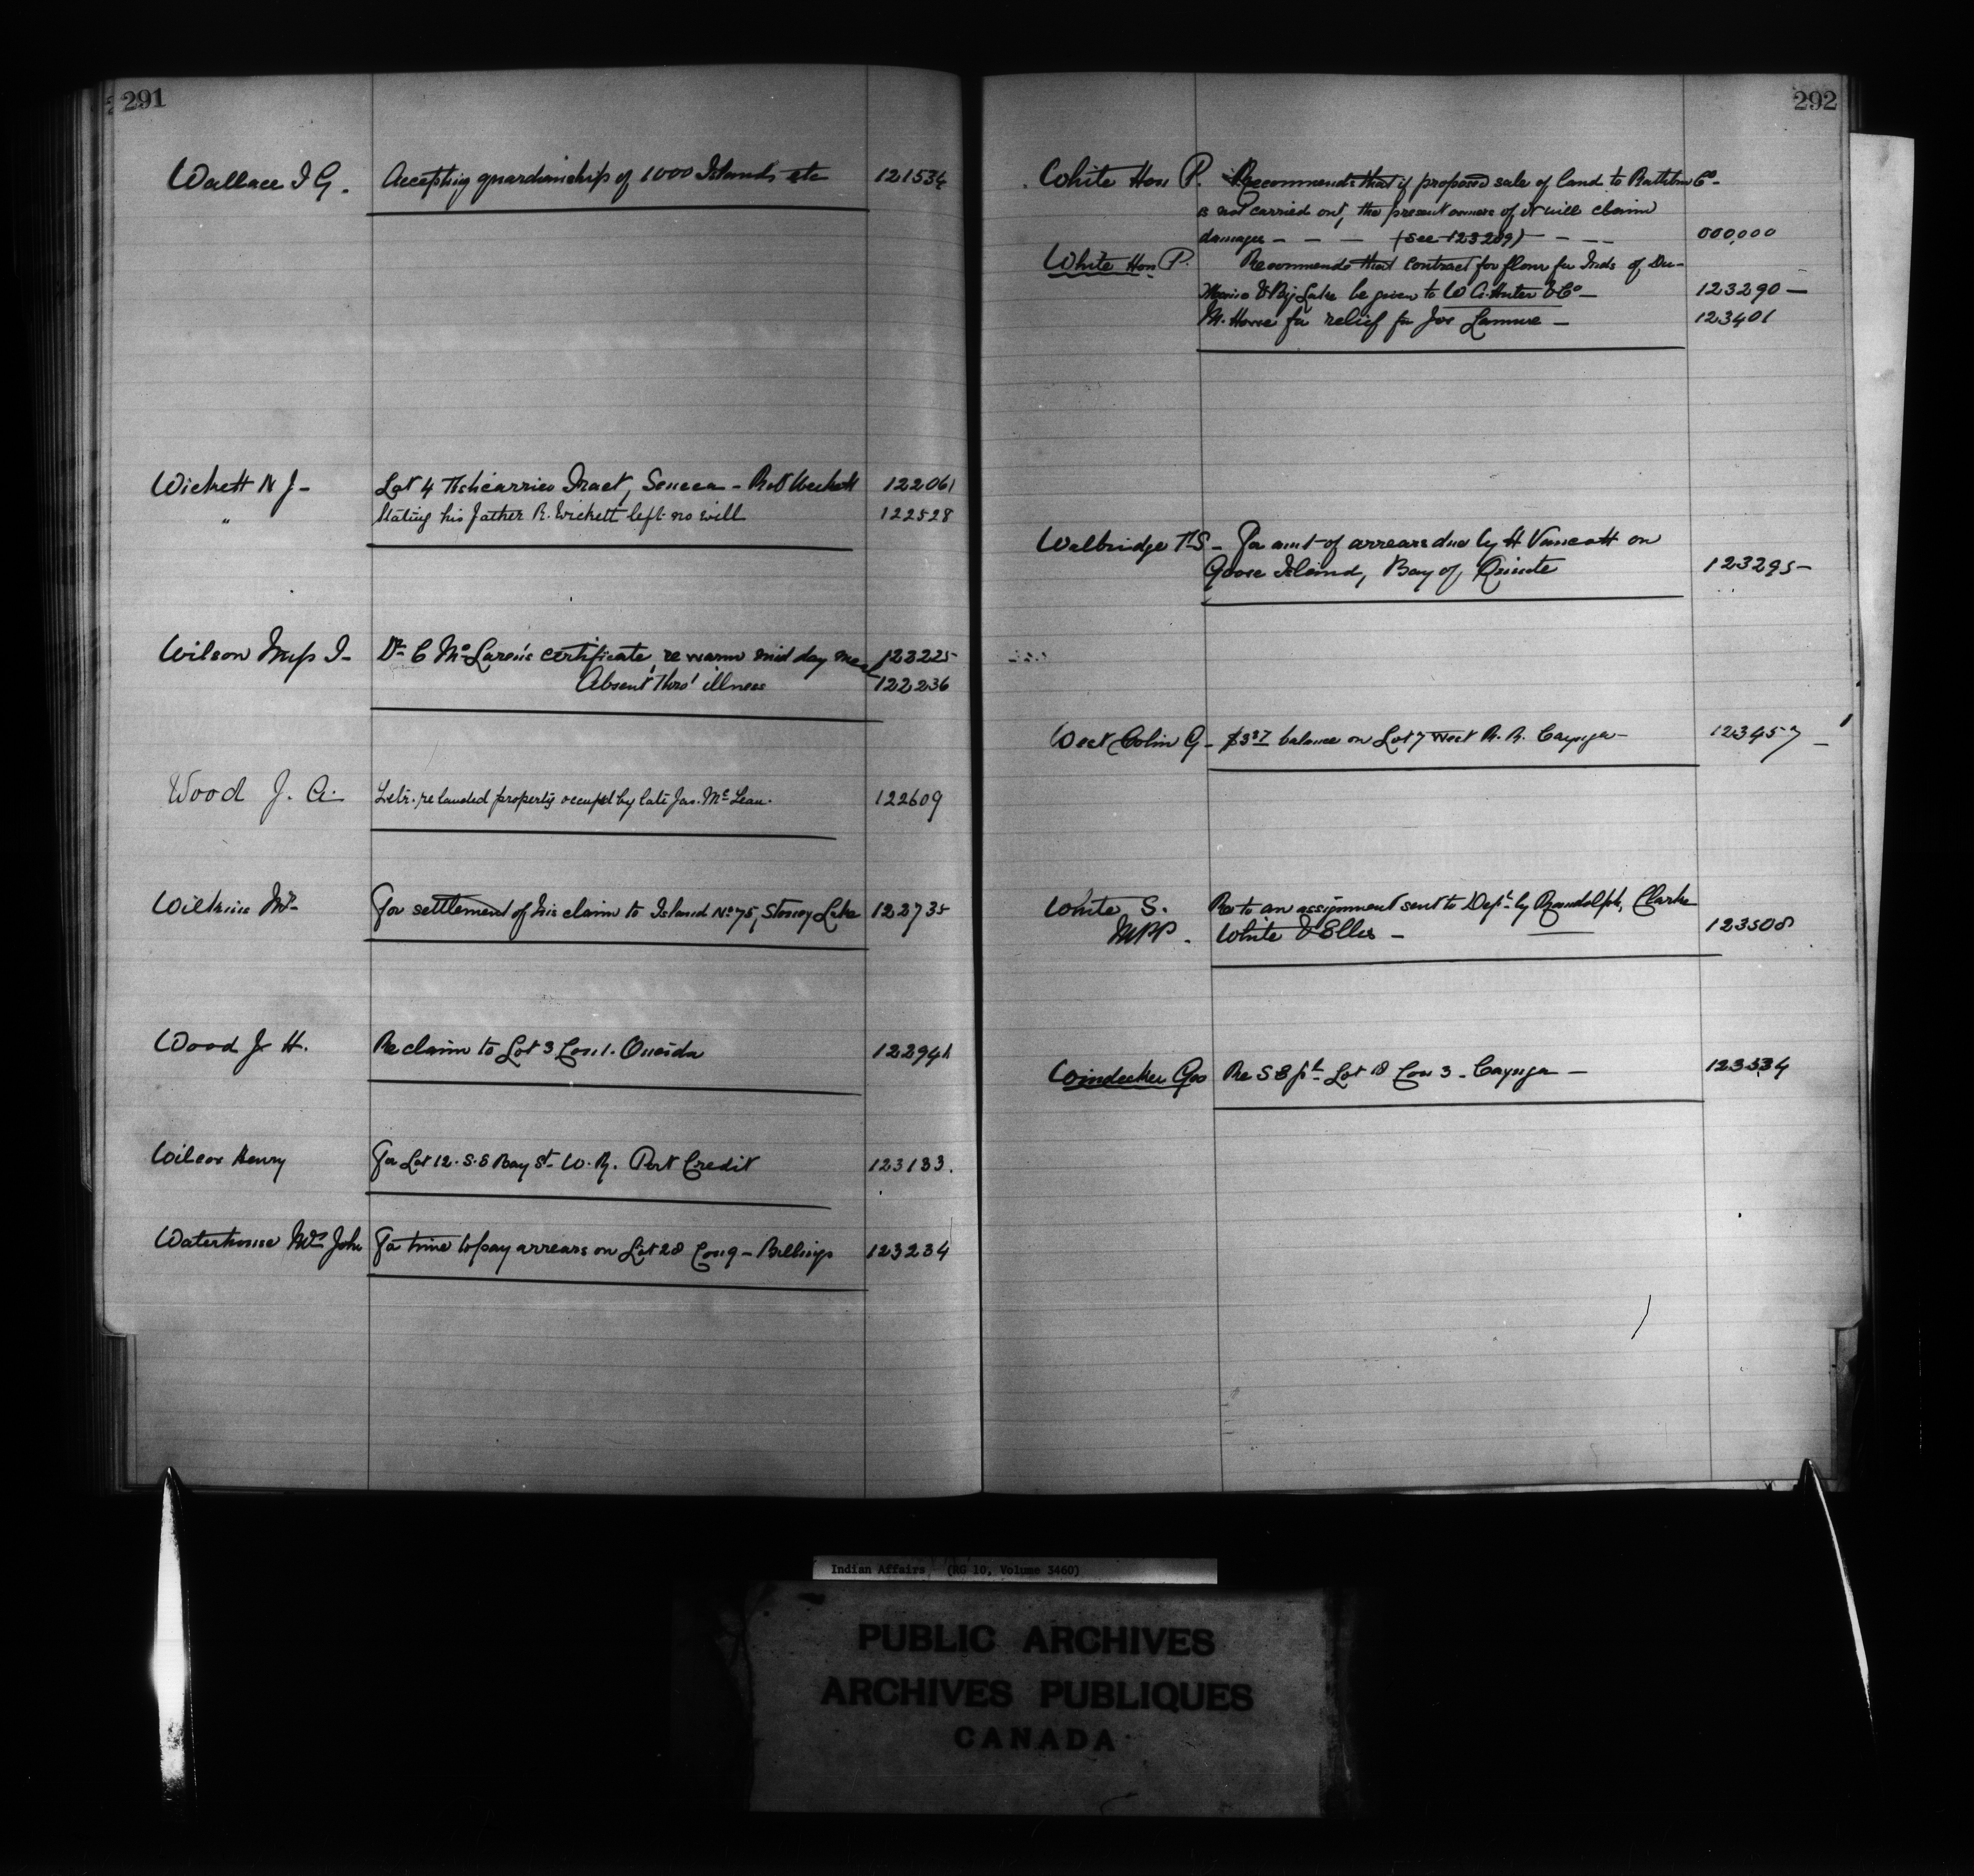 291
Wallace I G. Accepting guardianship of 1000 Islands etc 121534
Wickett N J - Lot 4 Tract, Seneca - Robt Wickett 122061
" Stating his father R. Wickett left no will 122528
Wilson Miss I - Dr C McLaren's certificate, re warm mid day meal 122225
Absent thro' illness 122236
Wood J. A. Letr. re landed property occup'd by late Jas. McLean. 122609
Wilkins Mr For settlement of his claim to Island No 75, Stoney Lake 122735
Wood J H. Re claim to Lot 3 Con 1. Oneida 122944
Wilcox Henry For Lot 12. S.S Bay St W. R. Port Credit 123133.
Waterhouse Mrs John For time to pay arrears on Lot 28 Con 9 - Billings 123234
292
White Hon P. Recommends that if proposed sale of land to Rathbun Co -
is not carried out, the present owners of it will claim
damages - - - (See 123289) - - - 000,000
White Hon P. Recommends that contract for flour for Inds of Du-
Moine & Big Lake be given to W A. Hunter & Co - 123290 -
M. House for relief for Jos Lamure - 123401
Walbridge T S - For amt of arrears due by H Vancott on
Goose Island, Bay of Quinte 123295 -
West Colin G - $3 37 balance on Lot 7 West R. R. Cayuga - 123457 -
White S. Re to an assignment sent to Dept by Randolph, Clarke
MPP. White & Ellis - 123508
Windecker Geo Re S E pt Lot 18 Con 3 - Cayuga - 123534
Indian Affairs (RG 10, Volume 3460)
PUBLIC ARCHIVES
ARCHIVES PUBLIQUES
CANADA